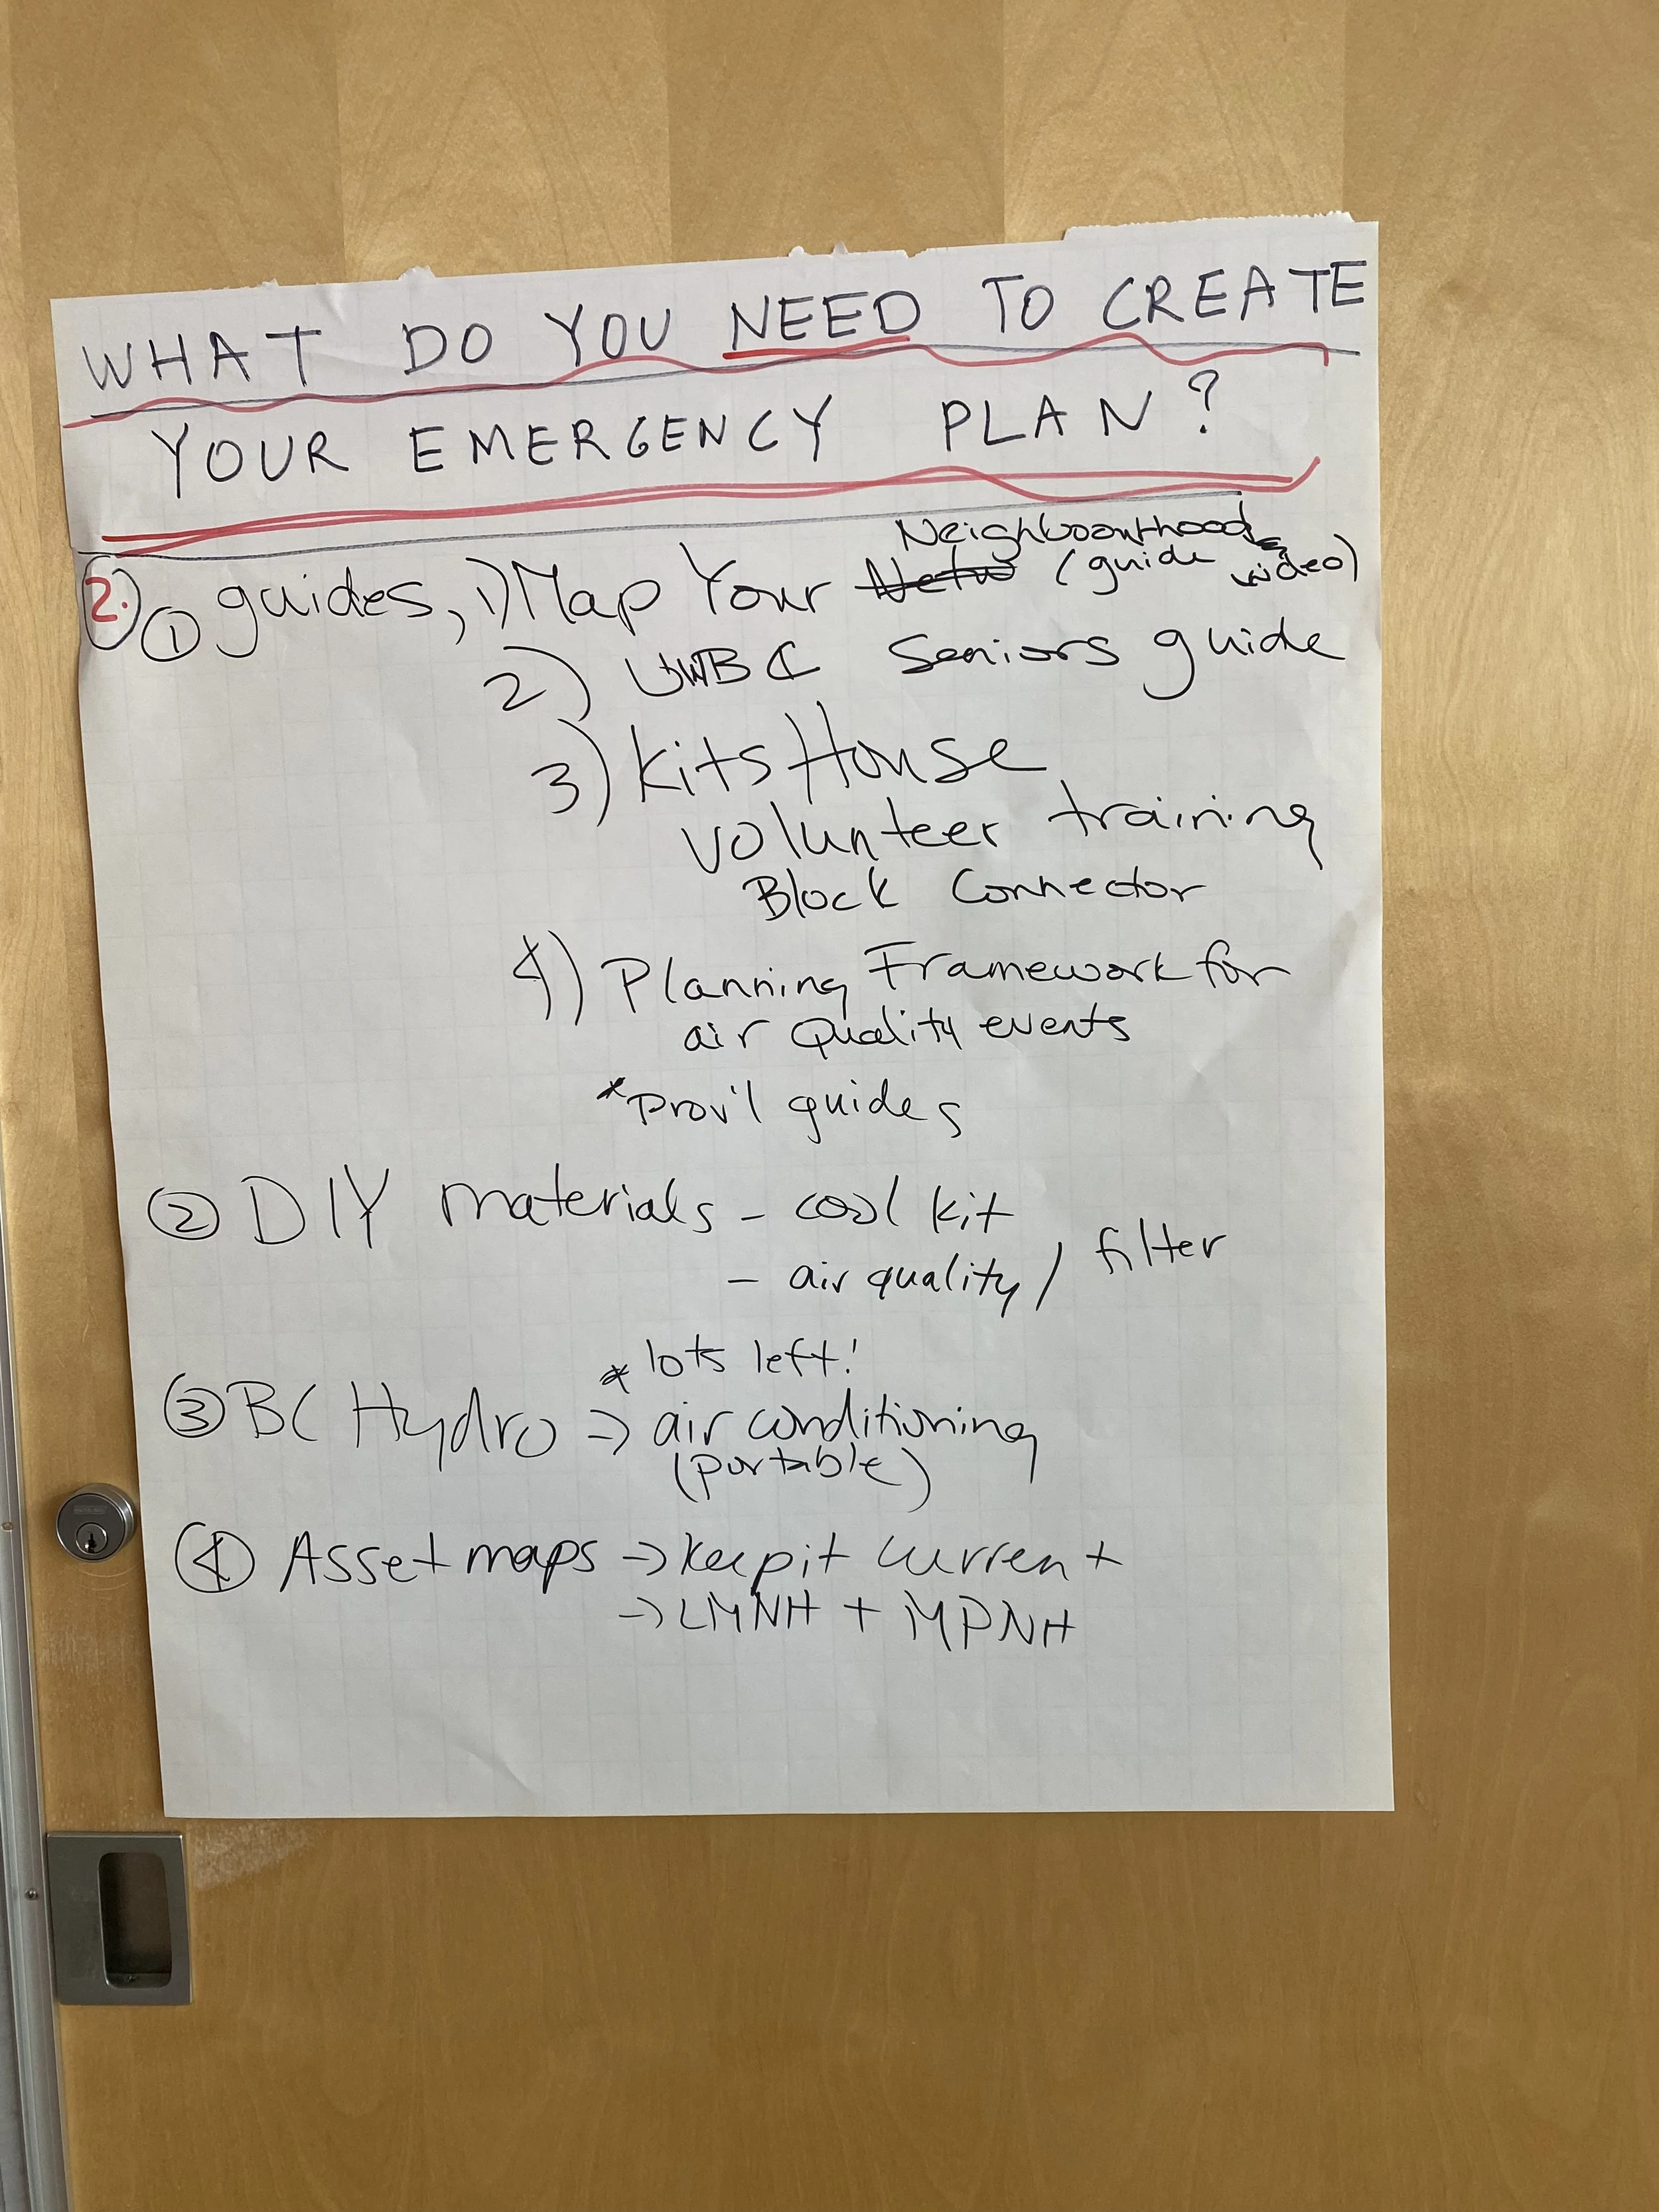 WHAT DO YOU NEED TO CREATE
YOUR EMERGENCY PLAN?
2. ① guides, 1) Map Your Neighbourhood (guide video)
2) UWBC Seniors guide
3) Kits House
volunteer training
Block Connector
4) Planning Framework for
air Quality events
*Prov'l guides
② DIY materials - cool kit
- air quality / filter
* lots left!
③ BC Hydro → air conditioning
(portable)
④ Asset maps → keep it current
→ LMNH + MPNH